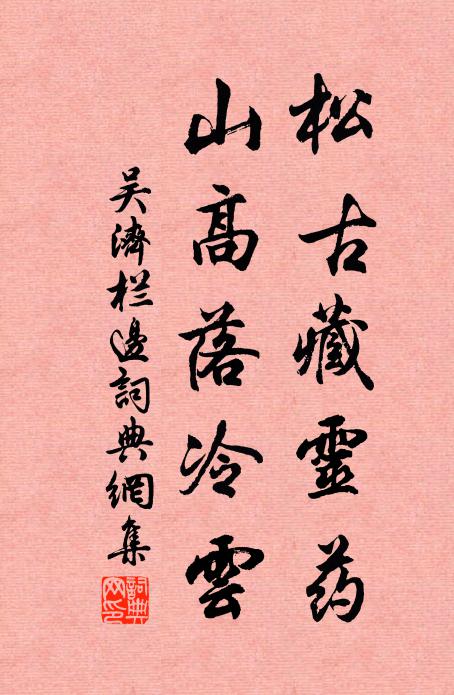 松古藏靈药
山高落冷雲
吴濟栏邊詞典網集
詞典網印